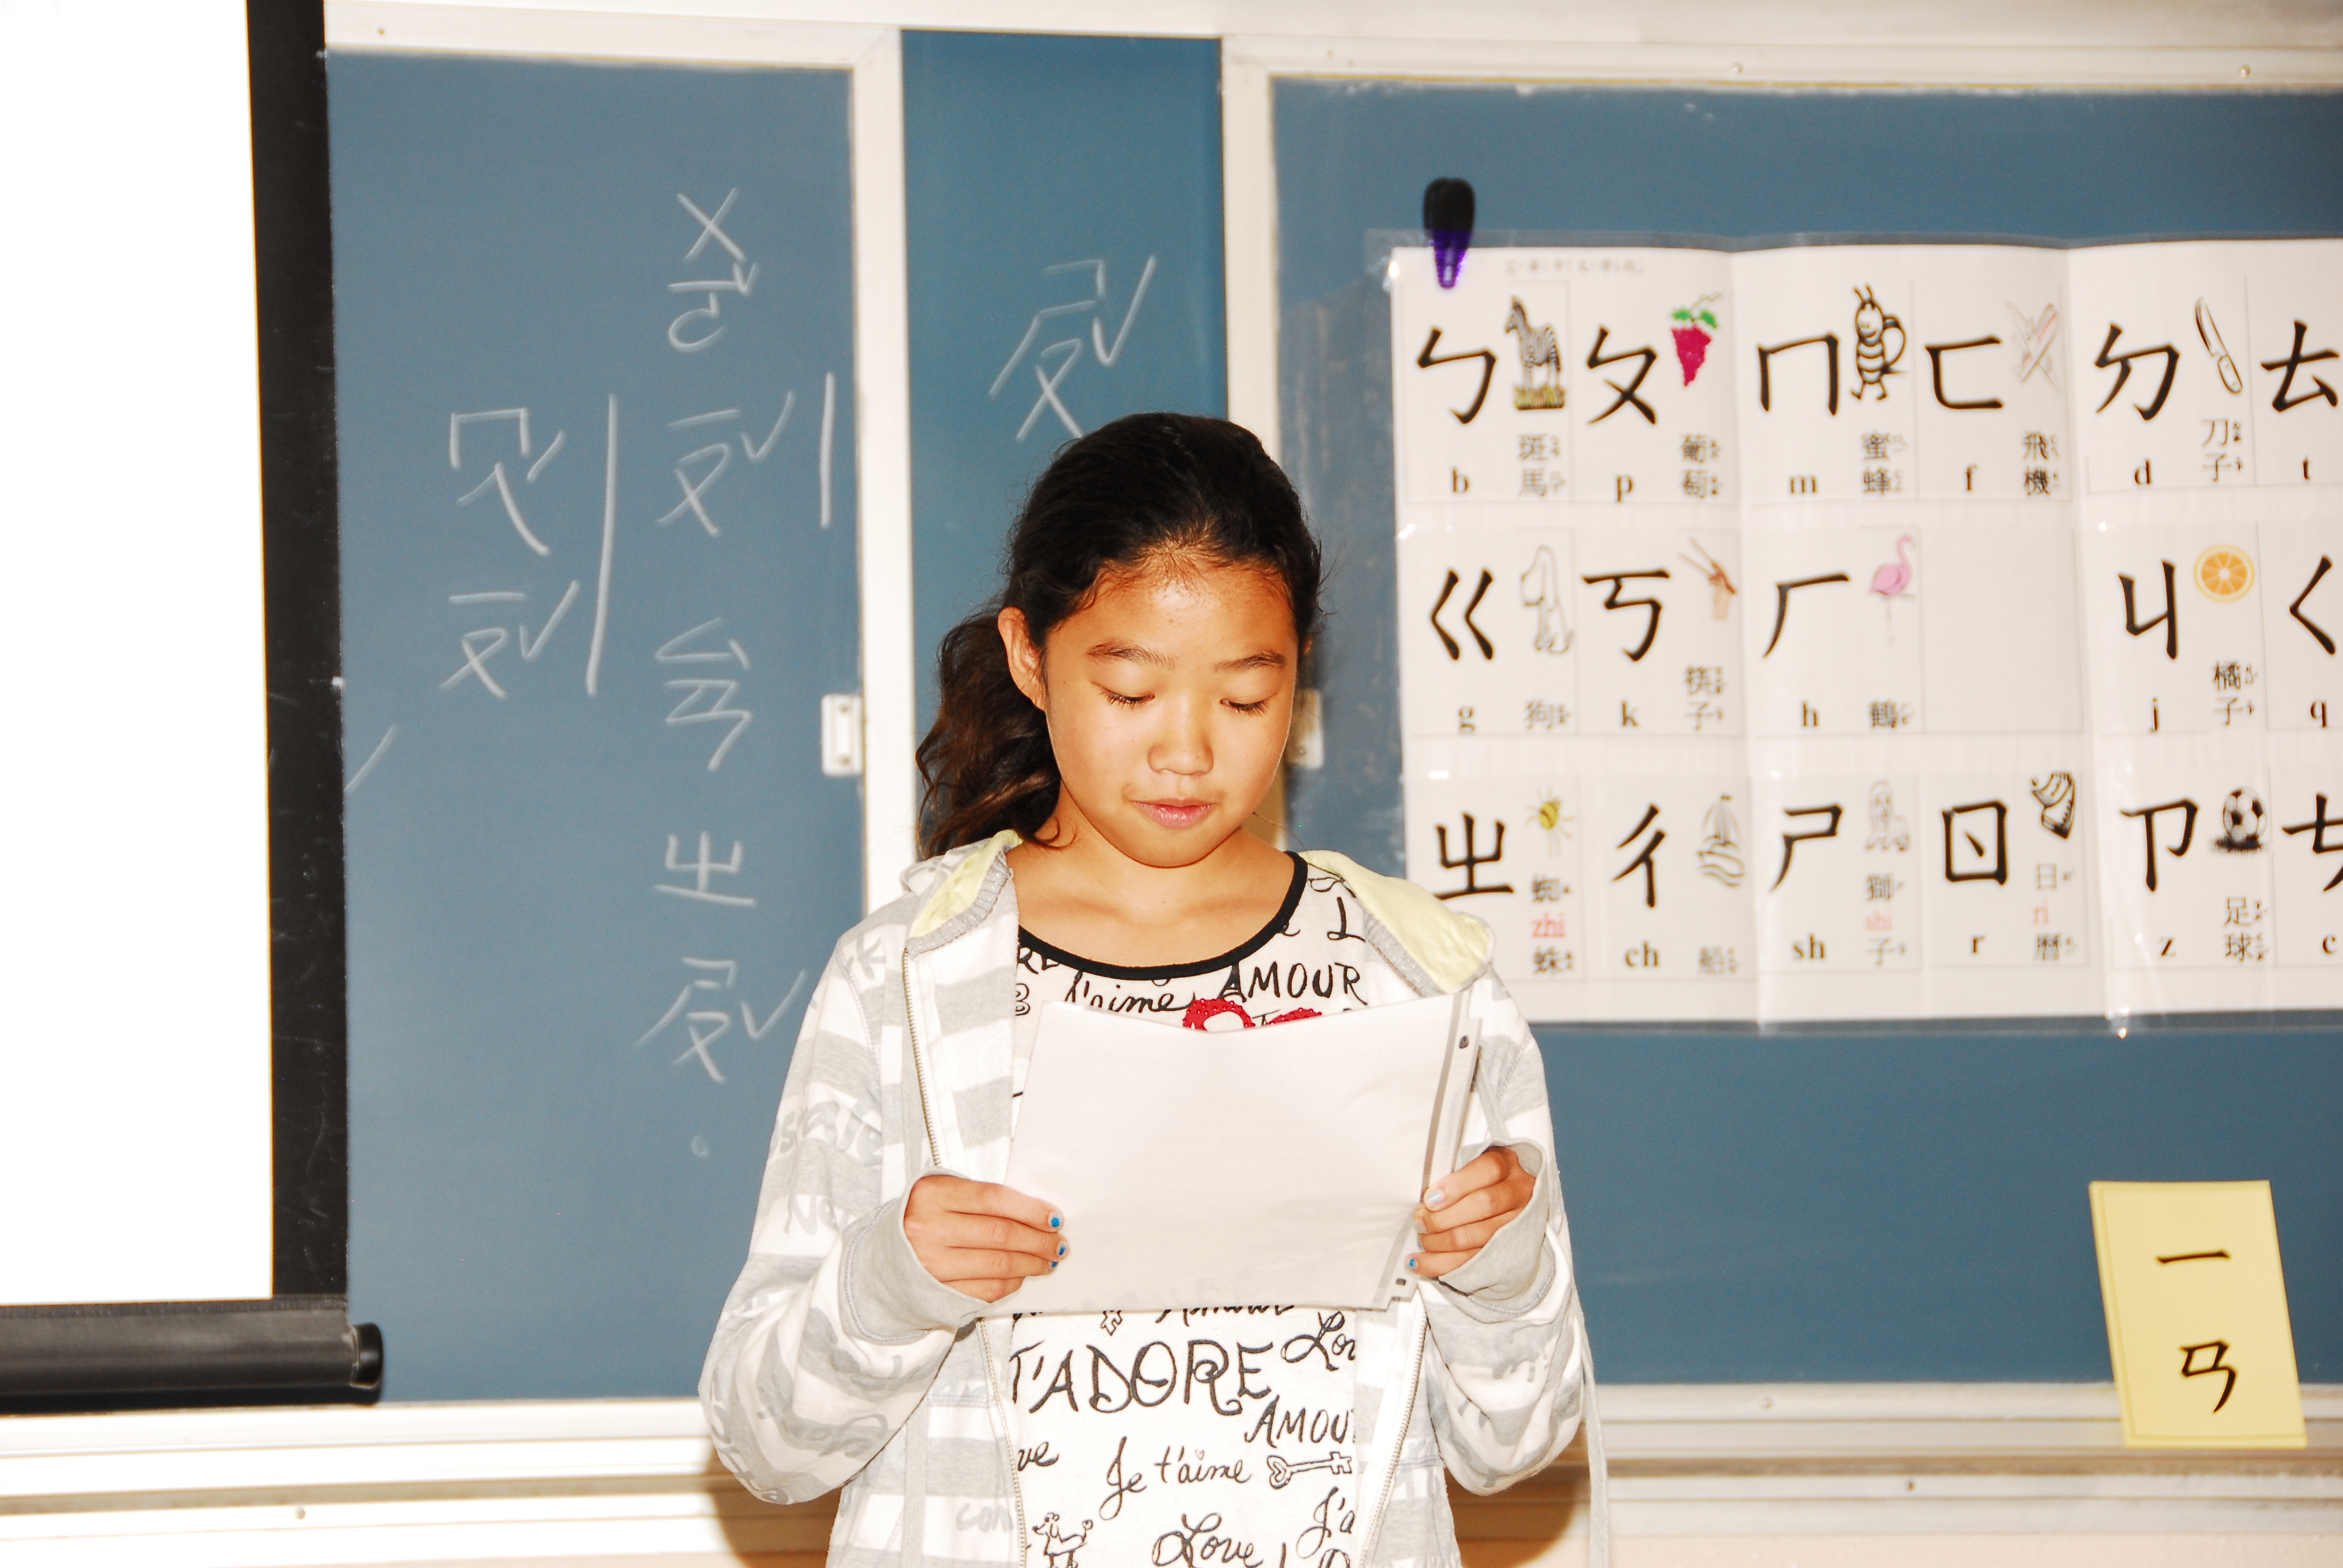 ㄇㄟˊ
ㄧㄡˇ
ㄨㄛˇ
ㄧㄡˇ
ㄙㄢ
ㄓ
ㄕㄡˇ
。
ㄕㄡˇ
ㄅ ㄆ ㄇ ㄈ ㄉ ㄊ
b 斑馬 p 葡萄 m 蜜蜂 f 飛機 d 刀子 t
ㄍ ㄎ ㄏ ㄐ ㄑ
g 狗 k 筷子 h 鶴 j 橘子 q
ㄓ ㄔ ㄕ ㄖ ㄗ ㄘ
zhi 蜘蛛 ch 船 sh 獅 shi 子 r 日 ri 曆 z 足球 c
ㄧ
ㄢ
AMOUR
J'aime
Amour
Love
T'ADORE
AMOU
Je t'aime
J'a
Love